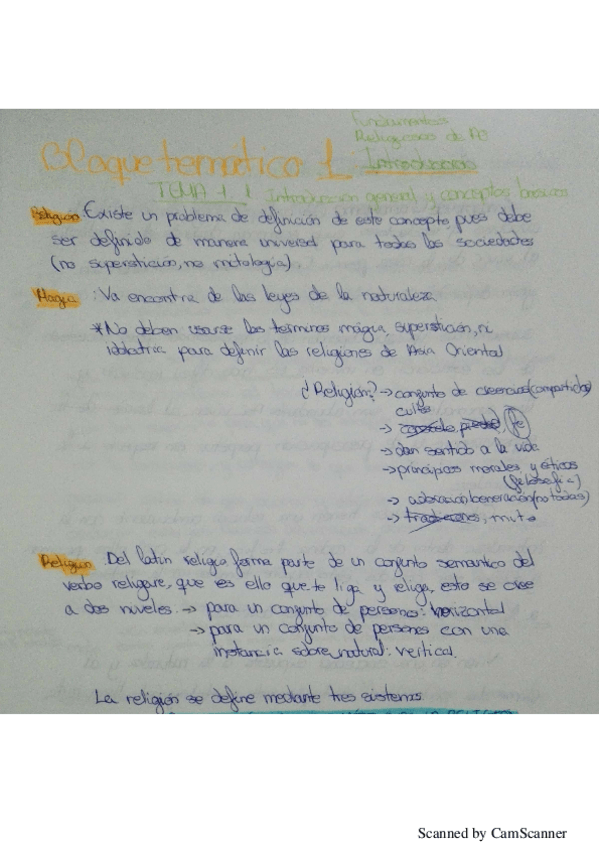 Fundamentos
Religiosos de AO
Bloque temático 1 Introducción
TEMA 1: Introducción general y conceptos básicos
Religión: Existe un problema de definición de este concepto pues debe
ser definido de manera universal para todas las sociedades
(no superstición, no mitología).
Magia: Va encontra de las leyes de la naturaleza.
*No deben usarse los terminos magia, superstición, ni
idolatría para definir las religiones de Asia Oriental
¿Religión? → conjunto de creencias (compartidas)
cultos
→ fe
→ dan sentido a la vida
→ principios morales y éticos
(filosofía)
→ adoración/beneración (no todas)
→ tradiciones, mito
Religión: Del latín religio, forma parte de un conjunto semantico del
verbo religare, que es ello que te liga y elige, esto se cree
a dos niveles. → para un conjunto de personas: horizontal
→ para un conjunto de personas con una
instancia sobrenatural: vertical.
La religión se define mediante tres sistemas
Scanned by CamScanner